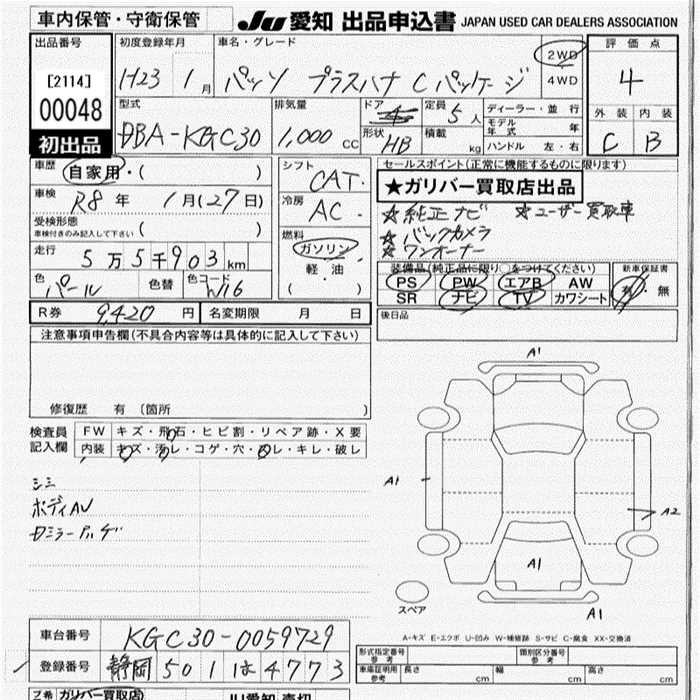 車内保管・守衛保管
JU 愛知 出品申込書 JAPAN USED CAR DEALERS ASSOCIATION
出品番号
[2114]
00048
初出品
初度登録年月
H23 1月
車名・グレード
パッソ プラスハナ Cパッケージ
2WD
4WD
評価点
4
外装 内装
C B
型式
DBA-KGC30
排気量
1,000 cc
ドア
形状 HB
定員 5人
積載 kg
ディーラー・並行
モデル年式 年
ハンドル 左・右
車歴 自家用・( )
車検 R8年 1月(27日)
受検形態
車検付きのみ記入して下さい ( )
走行 5万5千903km
色 パール 色替 色コード
シフト CAT
冷房 AC
燃料
ガソリン
軽・油
( )
セールスポイント(正常に機能するものに限ります)
★ガリバー買取店出品
☆純正ナビ ☆ユーザー買取車
☆バックカメラ
☆ワンオーナー
装備品(純正品に限り○をつけてください)
PS PW エアB AW
SR ナビ TV カワシート
新車保証書
有・無
R券 9,420円 名変期限 月 日
後日品
注意事項申告欄(不具合内容等は具体的に記入して下さい)
修復歴 有(箇所 )
検査員記入欄
FW キズ・飛石・ヒビ割・リペア跡・X要
内装 キズ・汚レ・コゲ・穴・スレ・キレ・破レ
シミ
ボディAU
A1
A1
A2
A1
A1
スペア
A-キズ E-エクボ U-凹み W-補修跡 S-サビ C-腐食 XX-交換済
車台番号 KGC30-0059729
登録番号 静岡 501 は 4773
形式指定番号 参考
類別区分番号 参考
車庫証明用 参考 長さ cm 幅 cm 高さ cm
ガリバー買取店)